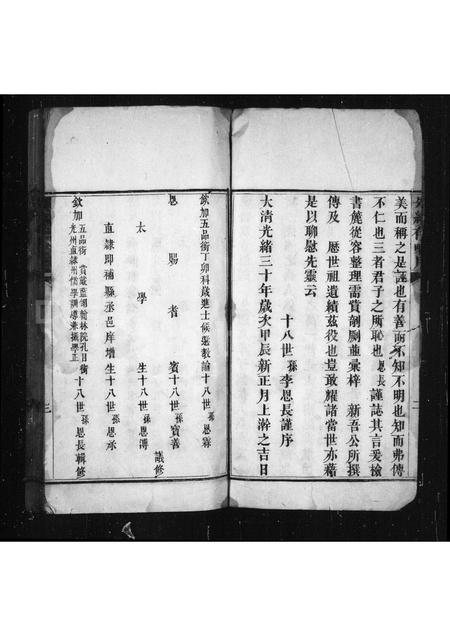 美而稱之是誣也有善而不知不明也知而弗傳
不仁也三者君子之所恥也恩長謹誌其言爰檢
書簏從容整理需賞剞劂並彙梓 新吾公所撰
傳及 歷世祖遺績茲役也豈敢耀諸當世亦藉
是以聊慰先靈云
十八世孫李恩長謹序
大清光緒三十年歲次甲辰新正月上澣之吉日
欽加五品銜丁卯科歲進士候選教諭十八世孫恩霖
恩賜耆賓十八世孫寶善
太學生十八世孫恩溥
議修
直隸即補縣丞邑庠增生十八世孫恩承
欽加五品銜賞戴藍翎翰林院孔目銜光州直隸州儒學訓導兼攝學正十八世孫恩長輯修
二
三